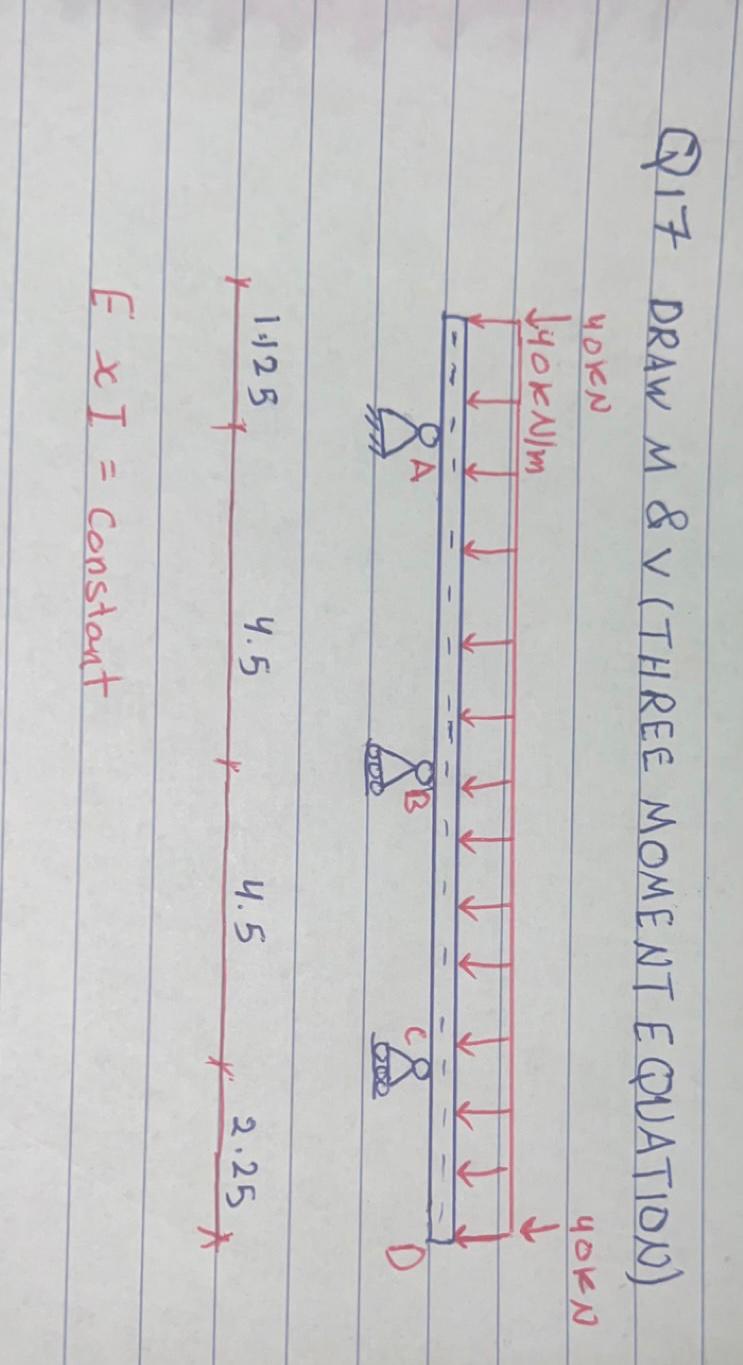 Q17 DRAW M & V (THREE MOMENT EQUATION)
40KN 40KN
40KN/m
A B C D
1.125 4.5 4.5 2.25
E x I = Constant